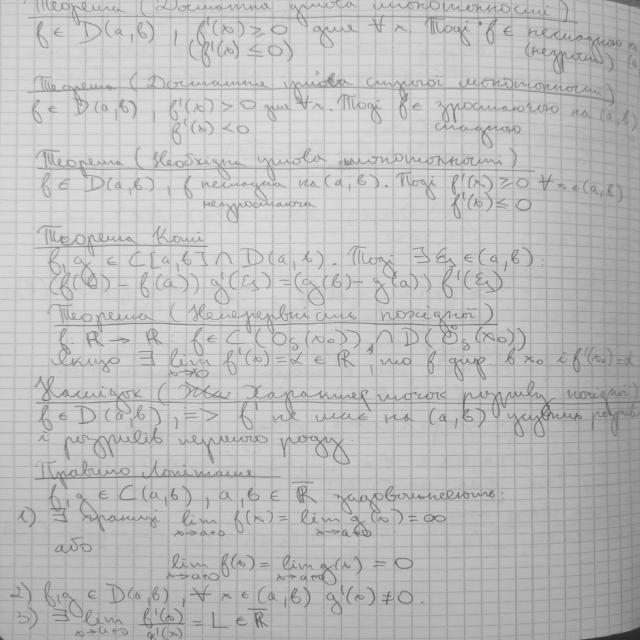 Теорема (Достатня умова монотонності)
f ∈ D(a,b), f'(x) ≥ 0 для ∀ x. Тоді f ∈ неспадною на
(f'(x) ≤ 0) (незрост.)
Теорема (Достатня умова строгої монотонності)
f ∈ D(a,b) f'(x) > 0 для ∀x. Тоді f є зростаючою на (a,b)
f'(x) < 0 спадною
Теорема (Необхідна умова монотонності)
f ∈ D(a,b), f неспадна на (a,b). Тоді f'(x) ≥ 0 ∀ x ∈ (a,b)
незростаюча f'(x) ≤ 0
Теорема Коші
f,g ∈ C[a,b] ∩ D(a,b). Тоді ∃ ξ ∈ (a,b):
(f(b) - f(a)) g'(ξ) = (g(b) - g(a)) f'(ξ)
Теорема (Неперервність похідної)
f: ℝ → ℝ: f ∈ C(O_δ(x₀)) ∩ D(Ȯ_δ(x₀))
Якщо ∃ lim f'(x) = α ∈ ℝ, то в x₀ і f'(x₀) = α
Наслідок (Характер точок розриву похідної)
f ∈ D(a,b), => f' не має на (a,b) усувних
і розривів першого роду.
Правило Лопіталя
f,g ∈ C(a,b), a,b ∈ ℝ̅ задовольняють:
1) ∃ границі lim f(x) = lim g(x) = ∞
x→a+0 x→a+0
або
lim f(x) = lim g(x) = 0
x→a+0 x→a+0
2) f,g ∈ D(a,b), ∀ x ∈ (a,b) g'(x) ≠ 0.
3) ∃ lim f'(x)/g'(x) = L ∈ ℝ̅
x→a+0